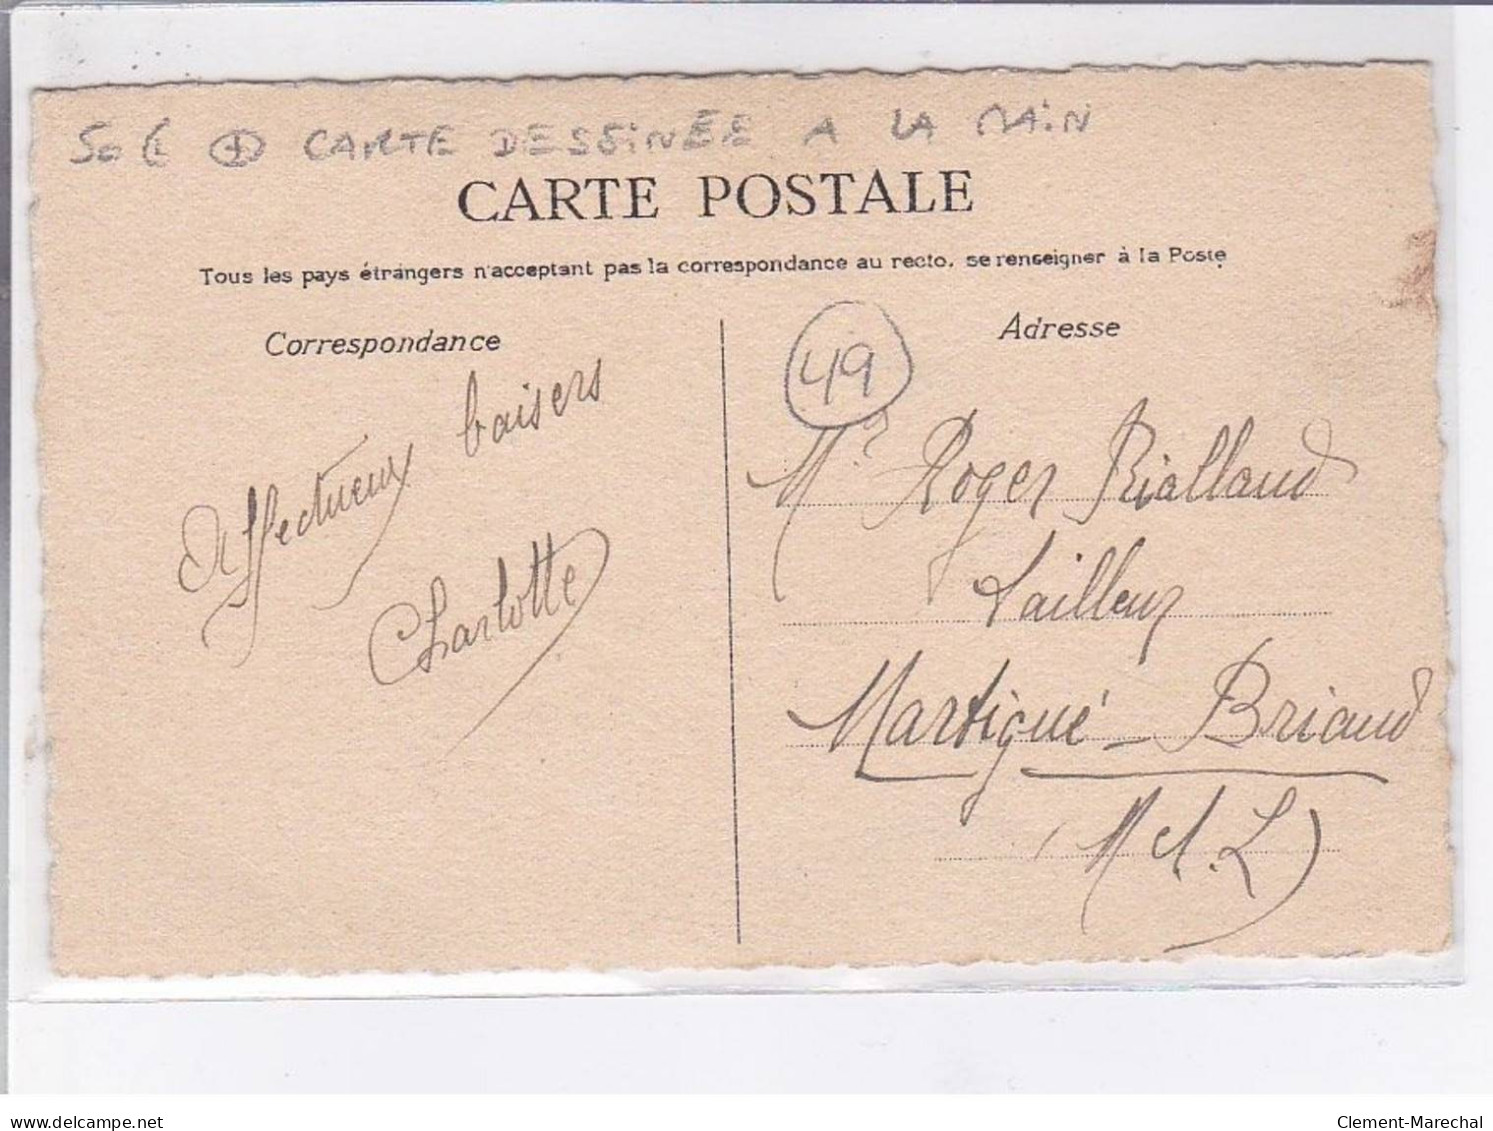 50 € ⊕ CARTE DESSINÉE A LA MAIN
CARTE POSTALE
Tous les pays étrangers n'acceptent pas la correspondance au recto, se renseigner à la Poste
Correspondance
Affectueux baisers
Charlotte
Adresse
49
Mr Roger Rialland
Tailleur
Martigué-Briand
(M et L)
delcampe.net
Clement-Marechal